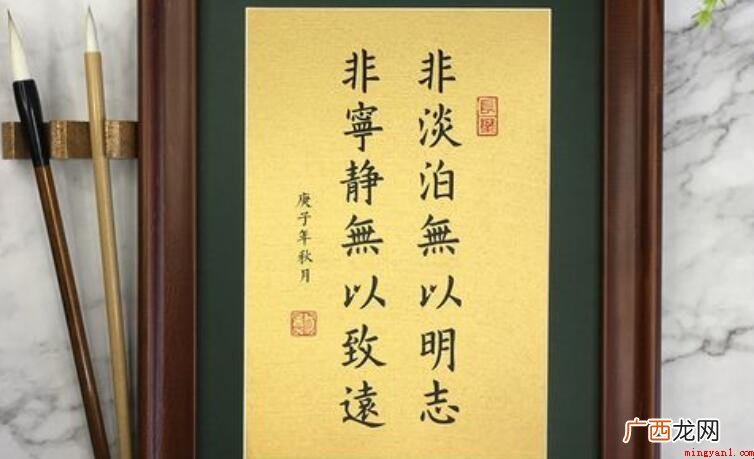 非淡泊無以明志
非寧靜無以致遠
庚子年秋月
广西龙网
mingyan1.com